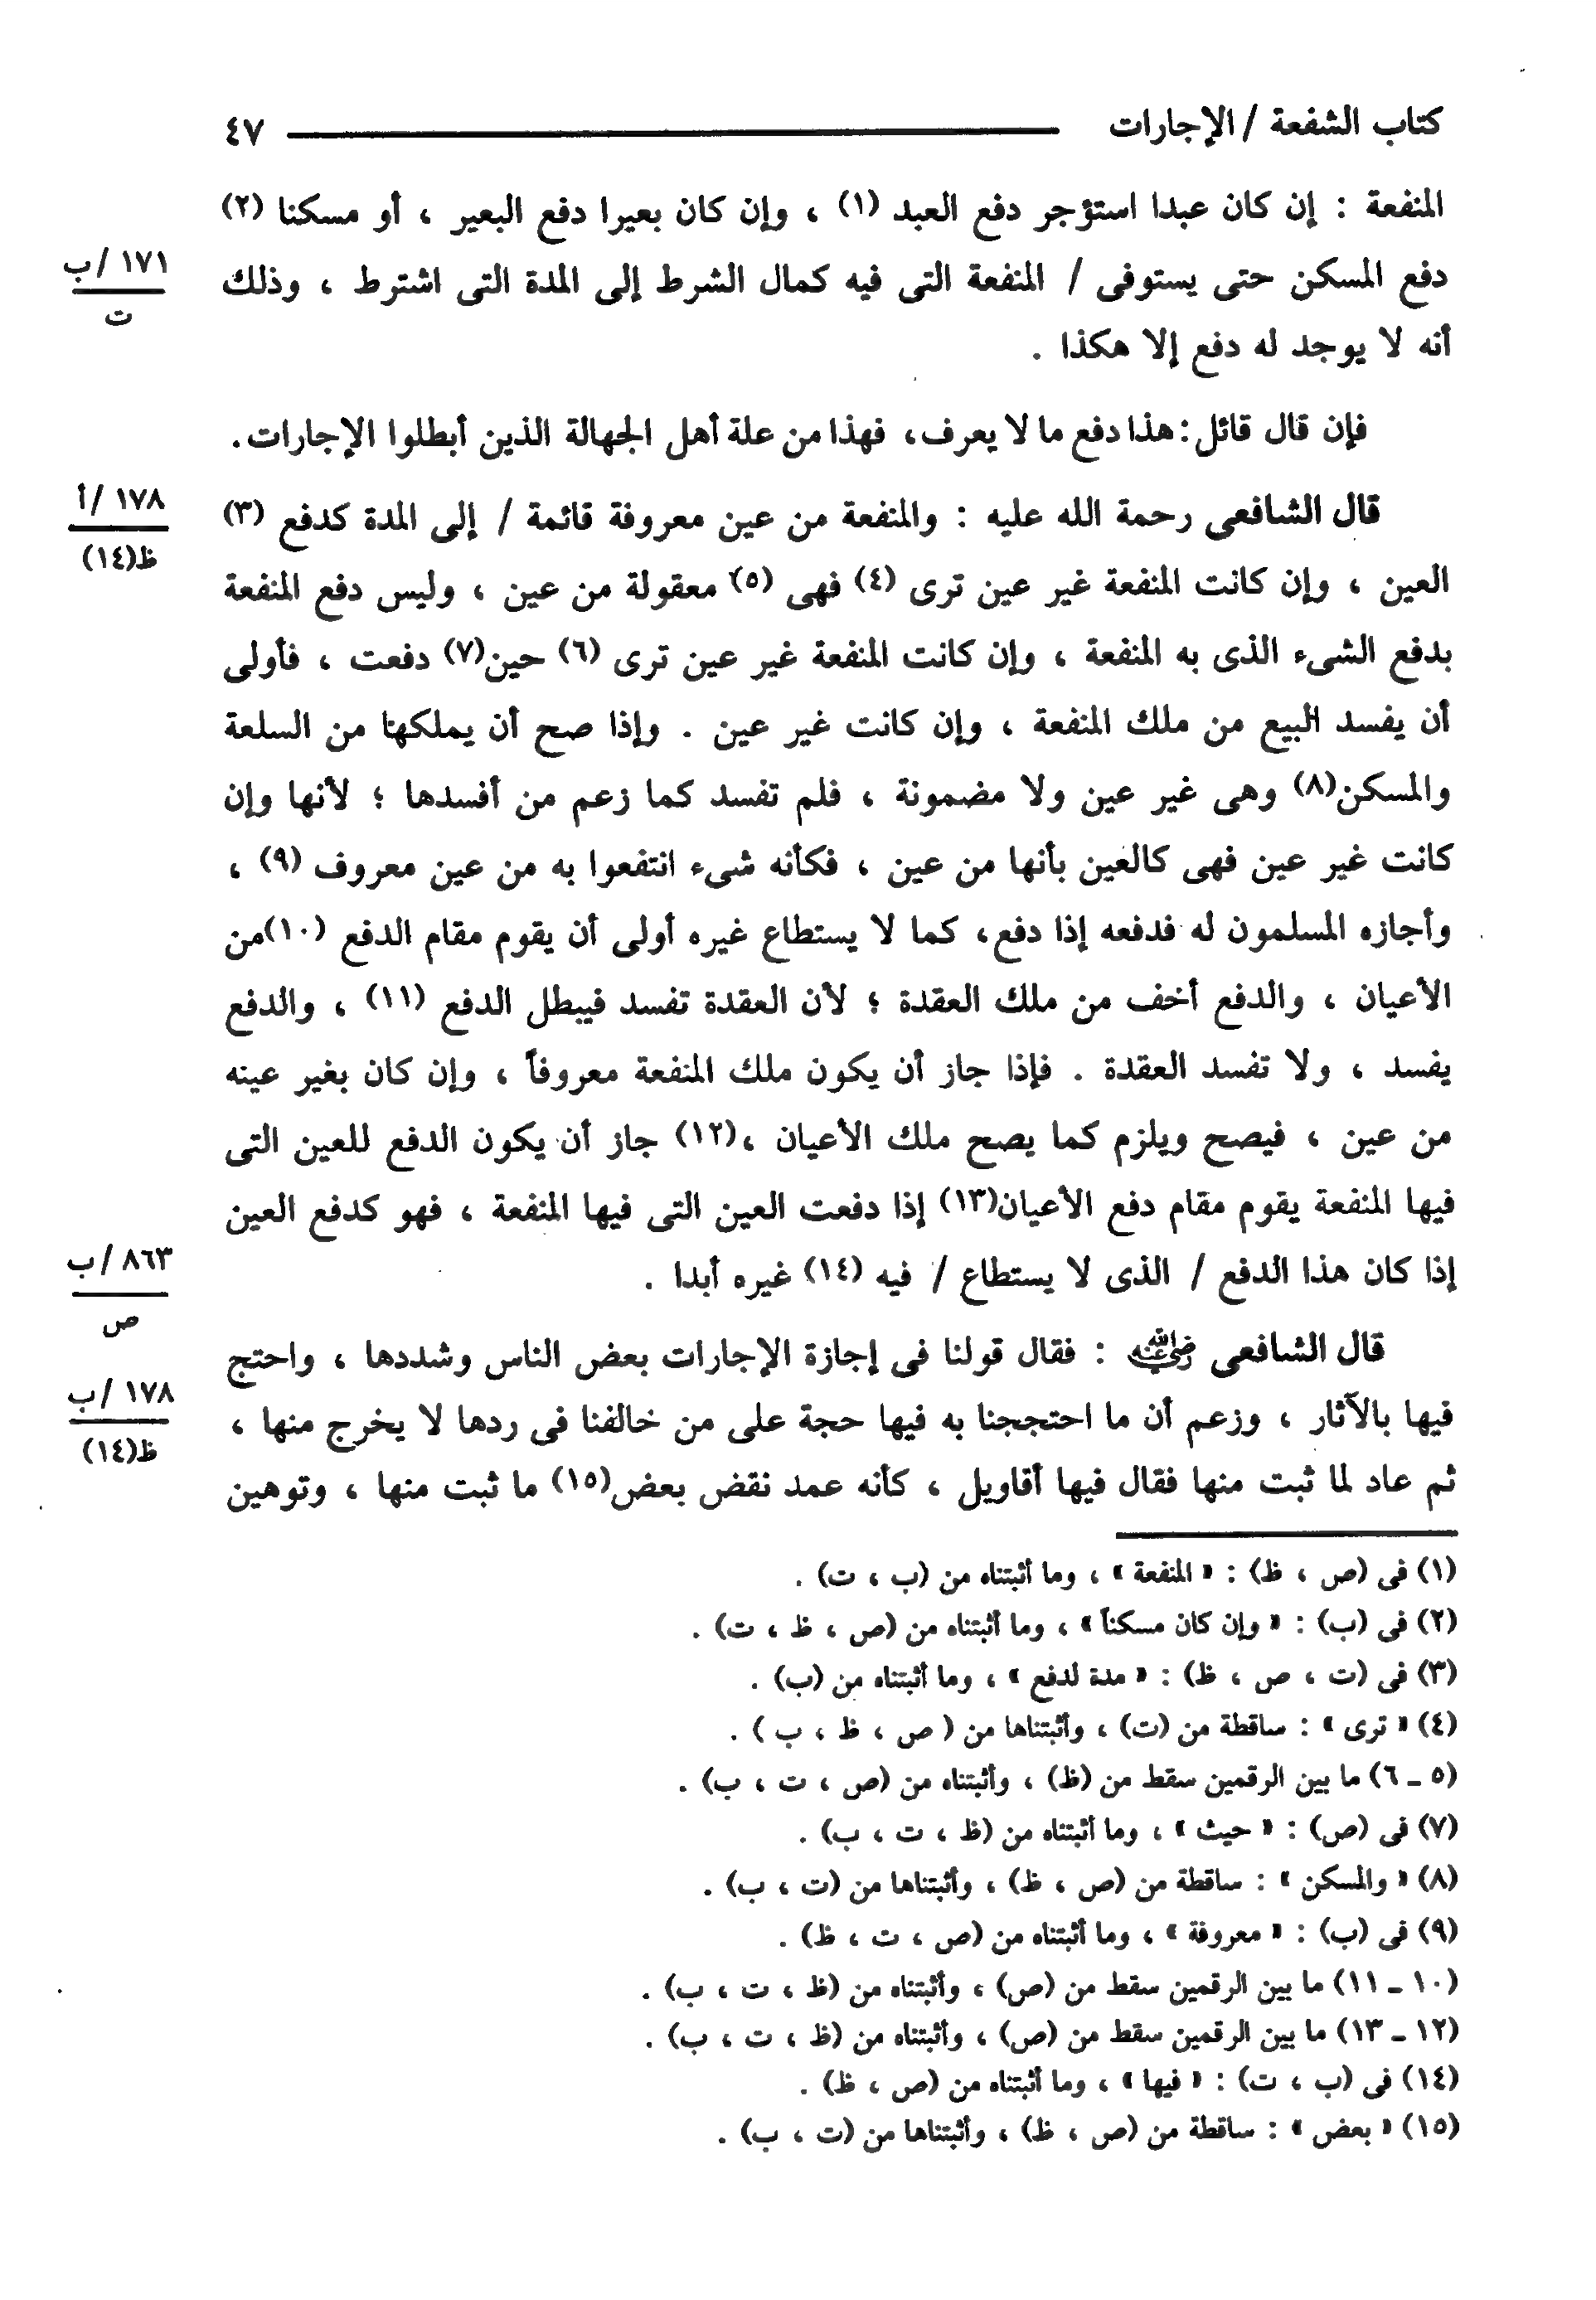 كتاب الشفعة / الإجارات ٤٧
المنفعة : إن كان عبدا استؤجر دفع العبد (١) ، وإن كان بعيرا دفع البعير ، أو مسكنا (٢)
دفع المسكن حتى يستوفى / المنفعة التى فيه كمال الشرط إلى المدة التى اشترط ، وذلك
١٧١ /ب
ت
أنه لا يوجد له دفع إلا هكذا .
فإن قال قائل : هذا دفع ما لا يعرف ، فهذا من علة أهل الجهالة الذين أبطلوا الإجارات .
قال الشافعى رحمة الله عليه : والمنفعة من عين معروفة قائمة / إلى المدة كدفع (٣)
١٧٨ /أ
ظ(١٤)
العين ، وإن كانت المنفعة غير عين ترى (٤) فهى (٥) معقولة من عين ، وليس دفع المنفعة
بدفع الشىء الذى به المنفعة ، وإن كانت المنفعة غير عين ترى (٦) حين(٧) دفعت ، فأولى
أن يفسد البيع من ملك المنفعة ، وإن كانت غير عين . وإذا صح أن يملكها من السلعة
والمسكن(٨) وهى غير عين ولا مضمونة ، فلم تفسد كما زعم من أفسدها ؛ لأنها وإن
كانت غير عين فهى كالعين بأنها من عين ، فكأنه شىء انتفعوا به من عين معروف (٩) ،
وأجازه المسلمون له فدفعه إذا دفع ، كما لا يستطاع غيره أولى أن يقوم مقام الدفع (١٠)من
الأعيان ، والدفع أخف من ملك العقدة ؛ لأن العقدة تفسد فيبطل الدفع (١١) ، والدفع
يفسد ، ولا تفسد العقدة . فإذا جاز أن يكون ملك المنفعة معروفاً ، وإن كان بغير عينه
من عين ، فيصح ويلزم كما يصح ملك الأعيان ،(١٢) جاز أن يكون الدفع للعين التى
فيها المنفعة يقوم مقام دفع الأعيان(١٣) إذا دفعت العين التى فيها المنفعة ، فهو كدفع العين
إذا كان هذا الدفع / الذى لا يستطاع / فيه (١٤) غيره أبدا .
٨٦٣ /ب
ص
قال الشافعى رضي الله عنه : فقال قولنا فى إجازة الإجارات بعض الناس وشددها ، واحتج
١٧٨ /ب
ظ(١٤)
فيها بالآثار ، وزعم أن ما احتججنا به فيها حجة على من خالفنا فى ردها لا يخرج منها ،
ثم عاد لما ثبت منها فقال فيها أقاويل ، كأنه عمد نقض بعض(١٥) ما ثبت منها ، وتوهين
(١) فى (ص ، ظ) : « المنفعة » ، وما أثبتناه من (ب ، ت) .
(٢) فى (ب) : « وإن كان مسكناً » ، وما أثبتناه من (ص ، ظ ، ت) .
(٣) فى (ت ، ص ، ظ) : « مدة لدفع » ، وما أثبتناه من (ب) .
(٤) « ترى » : ساقطة من (ت) ، وأثبتناها من ( ص ، ظ ، ب ) .
(٥ ــ ٦) ما بين الرقمين سقط من (ظ) ، وأثبتناه من (ص ، ت ، ب) .
(٧) فى (ص) : « حيث » ، وما أثبتناه من (ظ ، ت ، ب) .
(٨) « والمسكن » : ساقطة من (ص ، ظ) ، وأثبتناها من (ت ، ب) .
(٩) فى (ب) : « معروفة » ، وما أثبتناه من (ص ، ت ، ظ) .
(١٠ ــ ١١) ما بين الرقمين سقط من (ص) ، وأثبتناه من (ظ ، ت ، ب) .
(١٢ ــ ١٣) ما بين الرقمين سقط من (ص) ، وأثبتناه من (ظ ، ت ، ب) .
(١٤) فى (ب ، ت) : « فيها » ، وما أثبتناه من (ص ، ظ) .
(١٥) « بعض » : ساقطة من (ص ، ظ) ، وأثبتناها من (ت ، ب) .